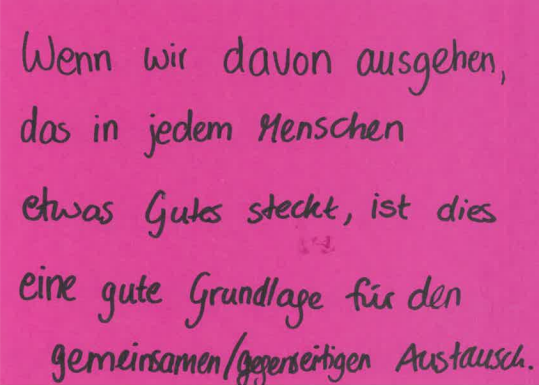 Wenn wir davon ausgehen,
das in jedem Menschen
etwas Gutes steckt, ist dies
eine gute Grundlage für den
gemeinsamen/gegenseitigen Austausch.